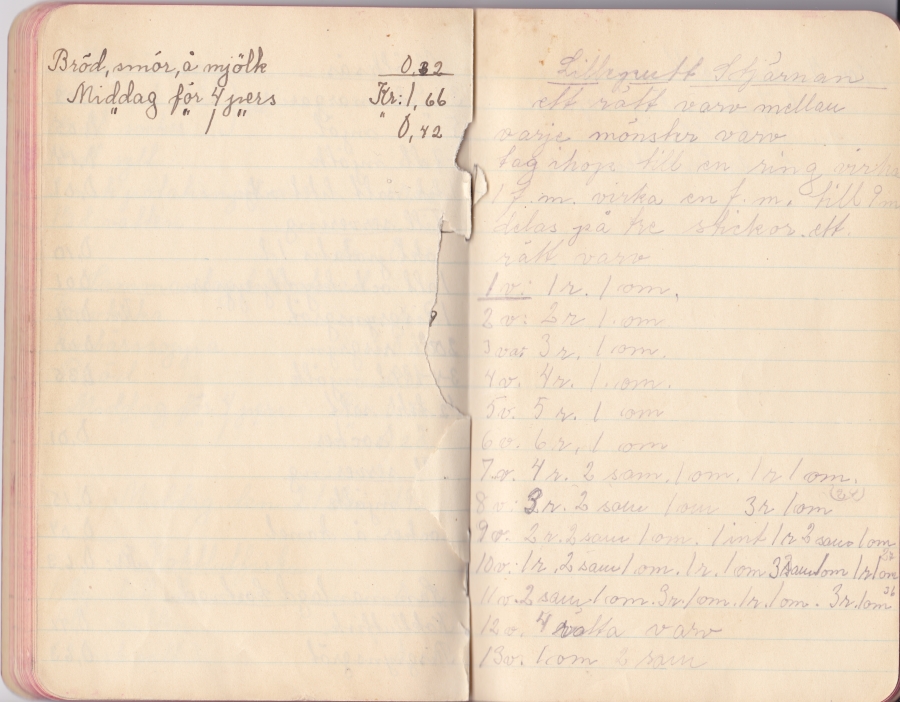 Bröd, smör, å mjölk 0,32
Middag för 4 pers Kr: 1,66
" " 1 " " 0,42
Lilleputt Stjärnan
ett rätt varv mellan
varje mönster varv
tag ihop till en ring virka
1 f.m. virka en f.m. till 9 m
delas på tre stickor ett
rätt varv
1 v: 1 r. 1 om.
2 v: 2 r 1 om
3 var 3 r. 1 om.
4 v. 4 r. 1 om.
5 v. 5 r. 1 om
6 v. 6 r, 1 om
7 v. 4 r. 2 sam. 1 om. 1 r 1 om.
8 v: 3 r. 2 sam 1 om 3 r 1 om
9 v. 2 r. 2 sam 1 om. 1 int 1 r 2 sam 1 om
10 v: 1 r. 2 sam 1 om. 1 r. 1 om 3 sam 1 om 1 r 1 om
11 v. 2 sam 1 om. 3 r 1 om. 1 r. 1 om. 3 r. 1 om
12 v. 4 räta varv
13 v. 1 om 2 sam